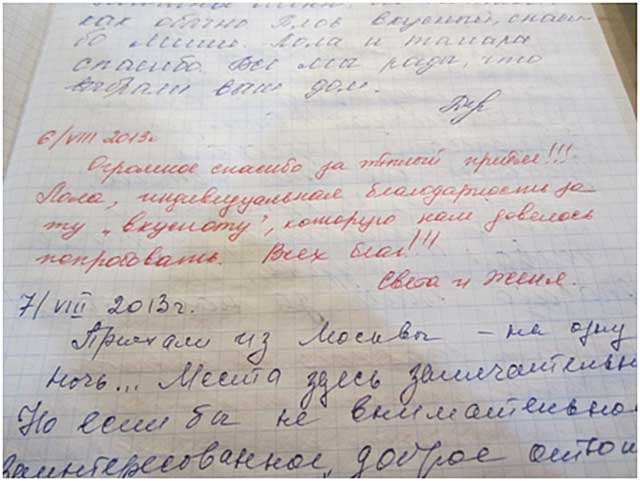 как обычно Плов вкусный, спаси-
бо Мише. Лола и Тамара
спасибо. Все мы рады, что
выбрали ваш дом.
6/VIII 2013г
Огромное спасибо за тёплый приём!!!
Лола, индивидуальная благодарность за
ту „вкусноту", которую нам довелось
попробовать. Всех благ!!!
Света и Женя.
7/VIII 2013г.
Приехали из Москвы – на одну
ночь... Места здесь замечательн
Но если бы не внимательное
заинтересованное, доброе отнош